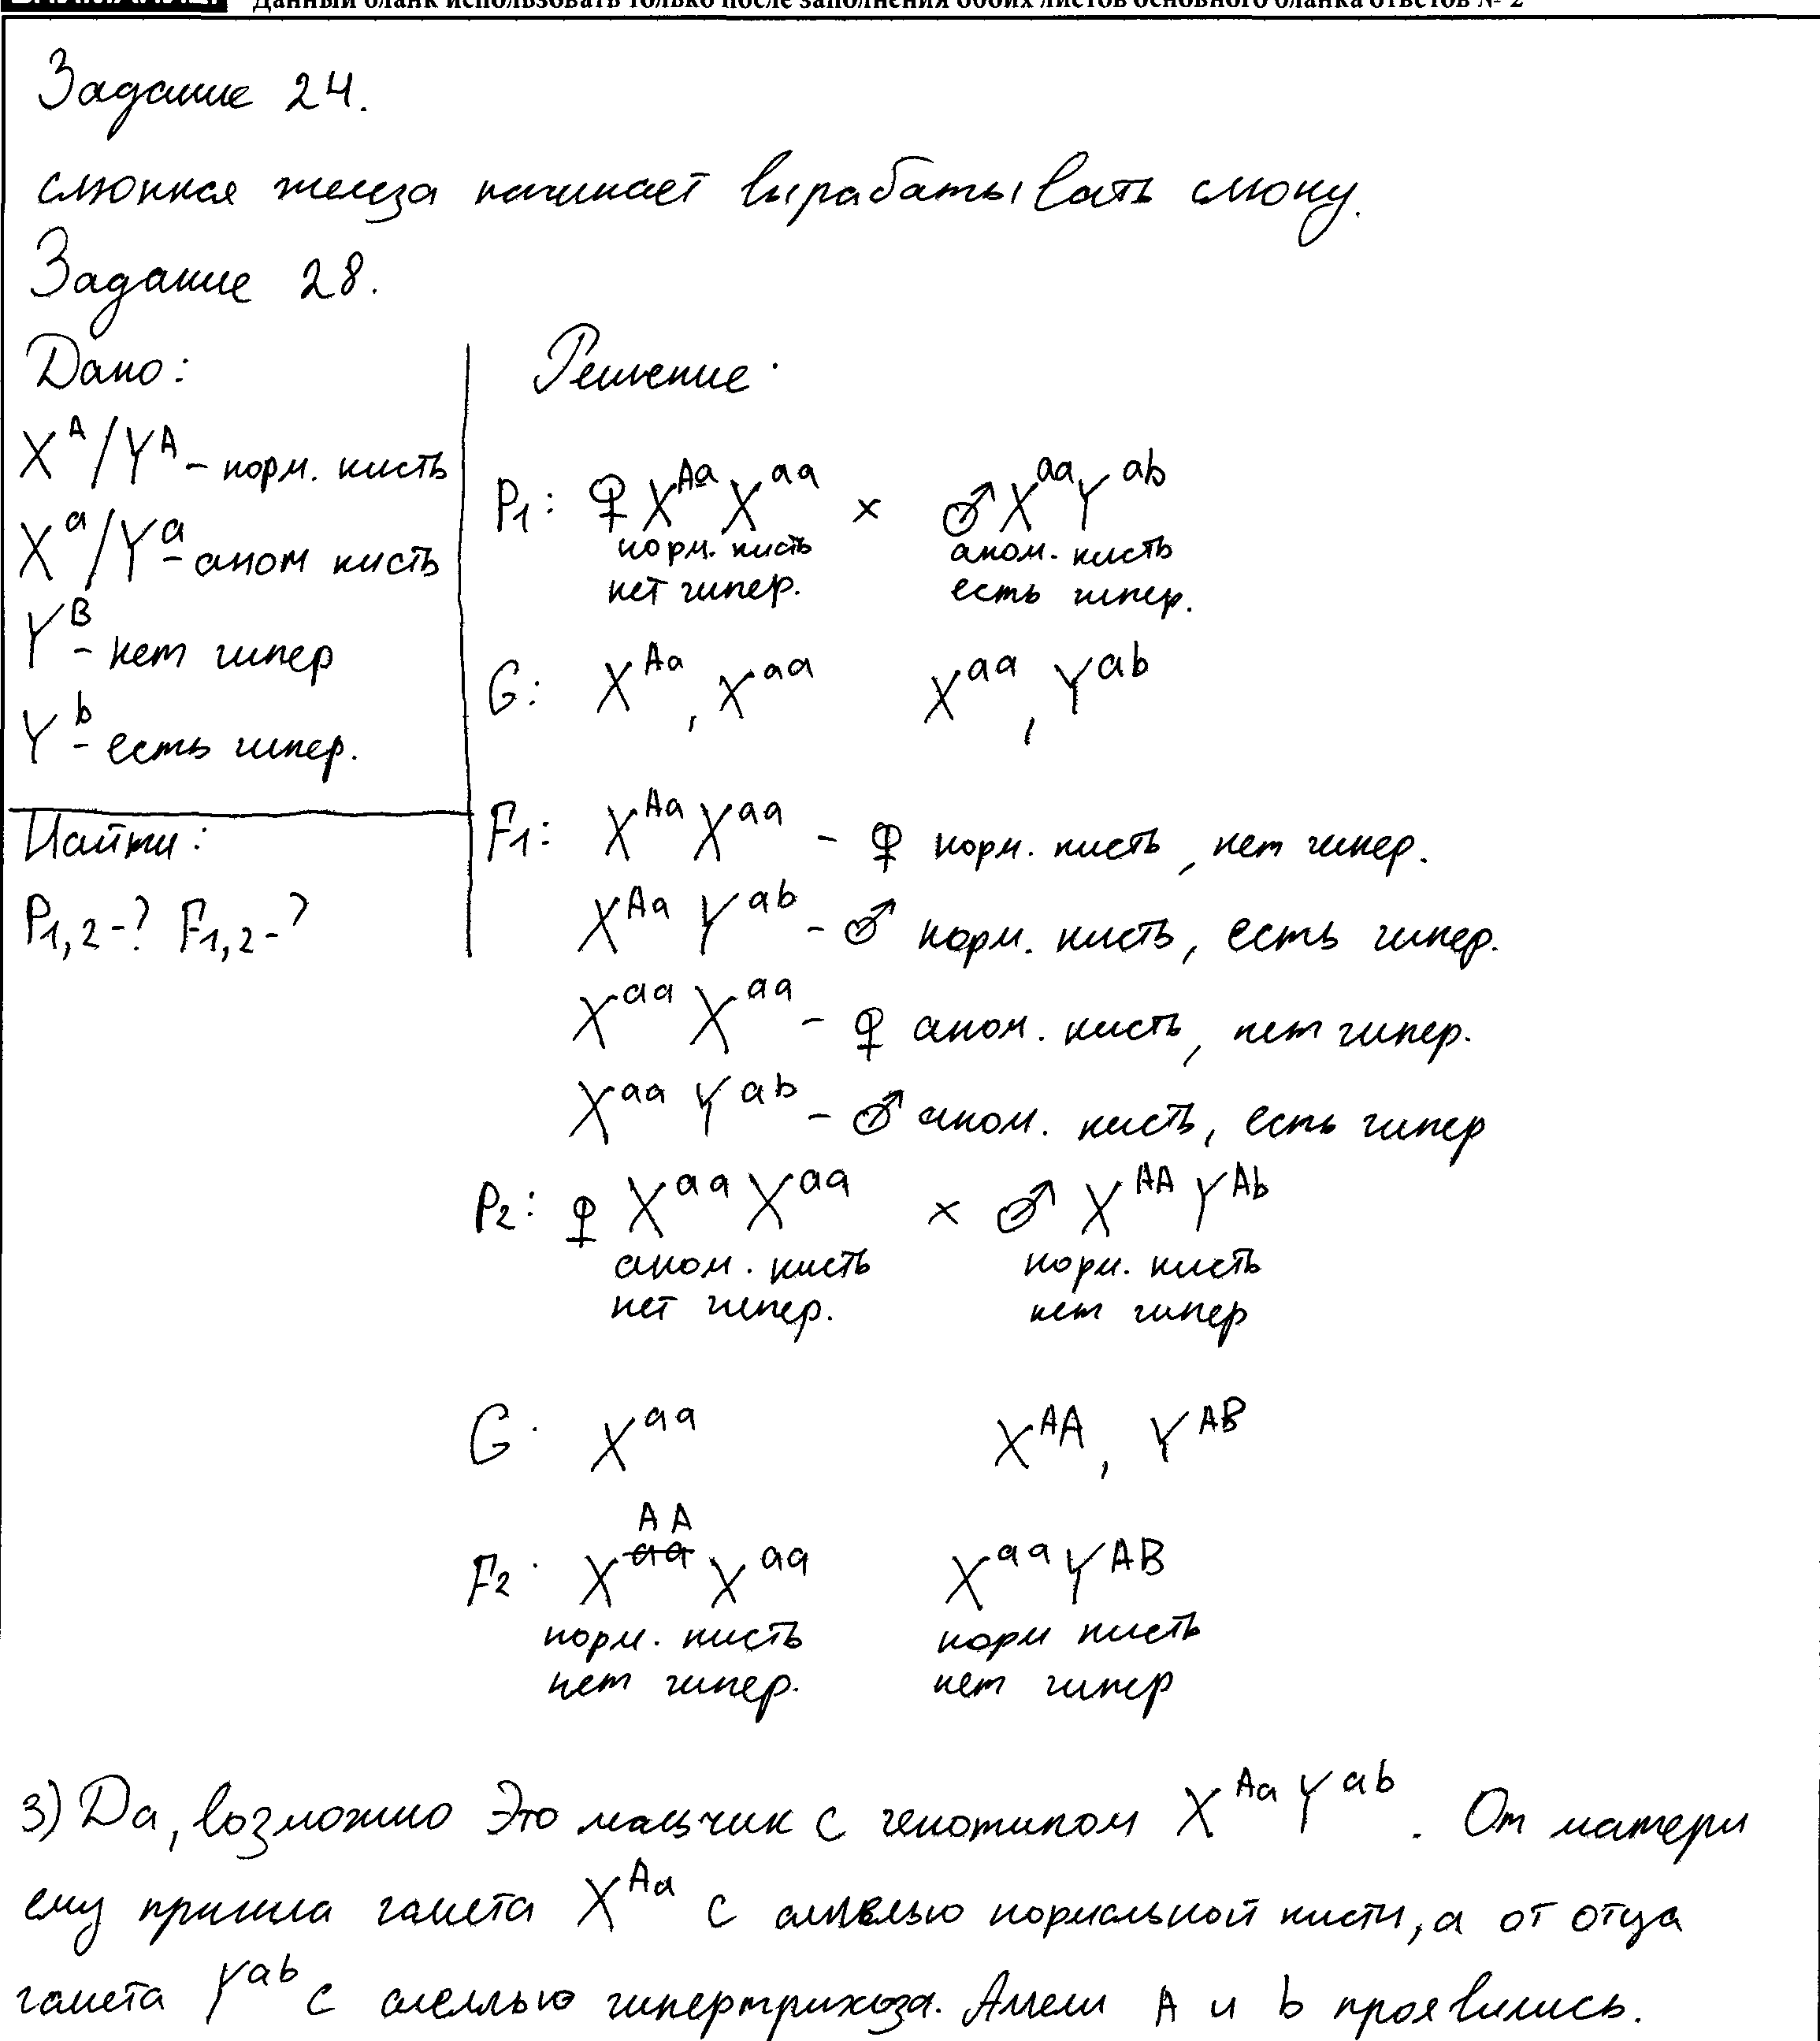 Данный бланк использовать только после заполнения обоих листов основного бланка ответов № 2
Задание 24.
слюнная железа начинает вырабатывать слюну.
Задание 28.
Дано:
X^A/Y^A – норм. кисть
X^a/Y^a – аном кисть
Y^B – нет гипер
Y^b – есть гипер.
Найти:
P1,2-? F1,2-?
Решение.
P1: ♀ X^Aa X^aa × ♂ X^aa Y^ab
норм. кисть аном. кисть
нет гипер. есть гипер.
G: X^Aa, X^aa X^aa, Y^ab
F1: X^Aa X^aa – ♀ норм. кисть, нет гипер.
X^Aa Y^ab – ♂ норм. кисть, есть гипер.
X^aa X^aa – ♀ аном. кисть, нет гипер.
X^aa Y^ab – ♂ аном. кисть, есть гипер
P2: ♀ X^aa X^aa × ♂ X^AA Y^Ab
аном. кисть норм. кисть
нет гипер. нет гипер
G. X^aa X^AA, Y^AB
F2. X^AA X^aa X^aa Y^AB
норм. кисть норм кисть
нет гипер. нет гипер
3) Да, возможно Это мальчик с генотипом X^Aa Y^ab. От матери
ему пришла гамета X^Aa с аллелью нормальной кисти, а от отца
гамета Y^ab с аллелью гипертрихоза. Аллели A и b проявились.